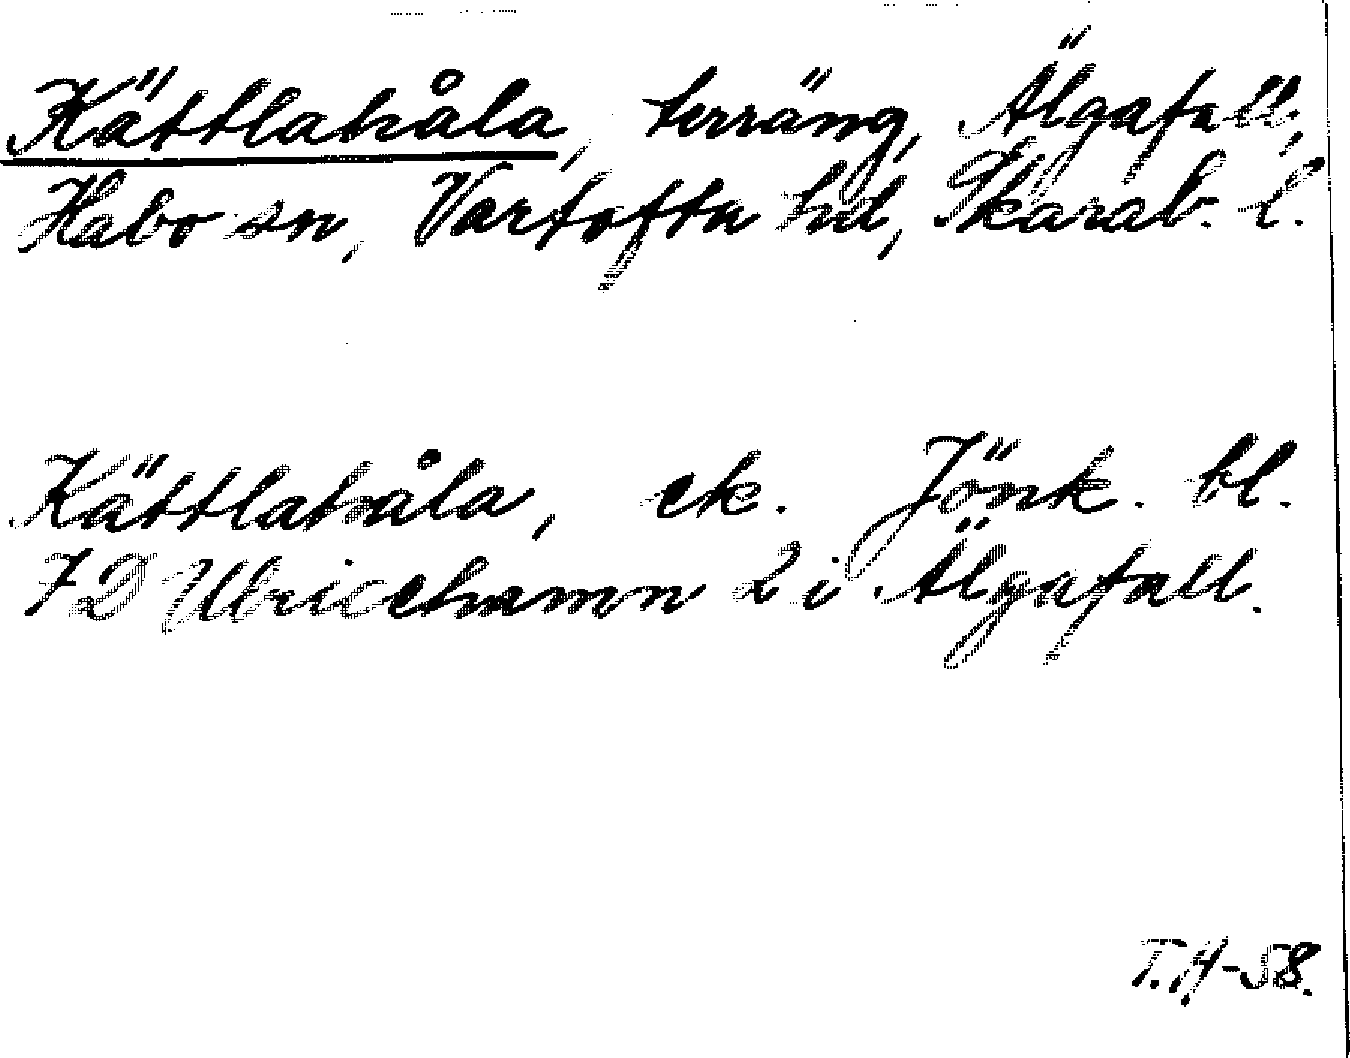 Kättlahåla, terräng, Älgafall,
Habo sn, Vartofta hd, Skarab. l.
Kättlahåla, ek. Jönk. bl.
7D Ulricehamn 2 i Älgafall.
T.H-58.